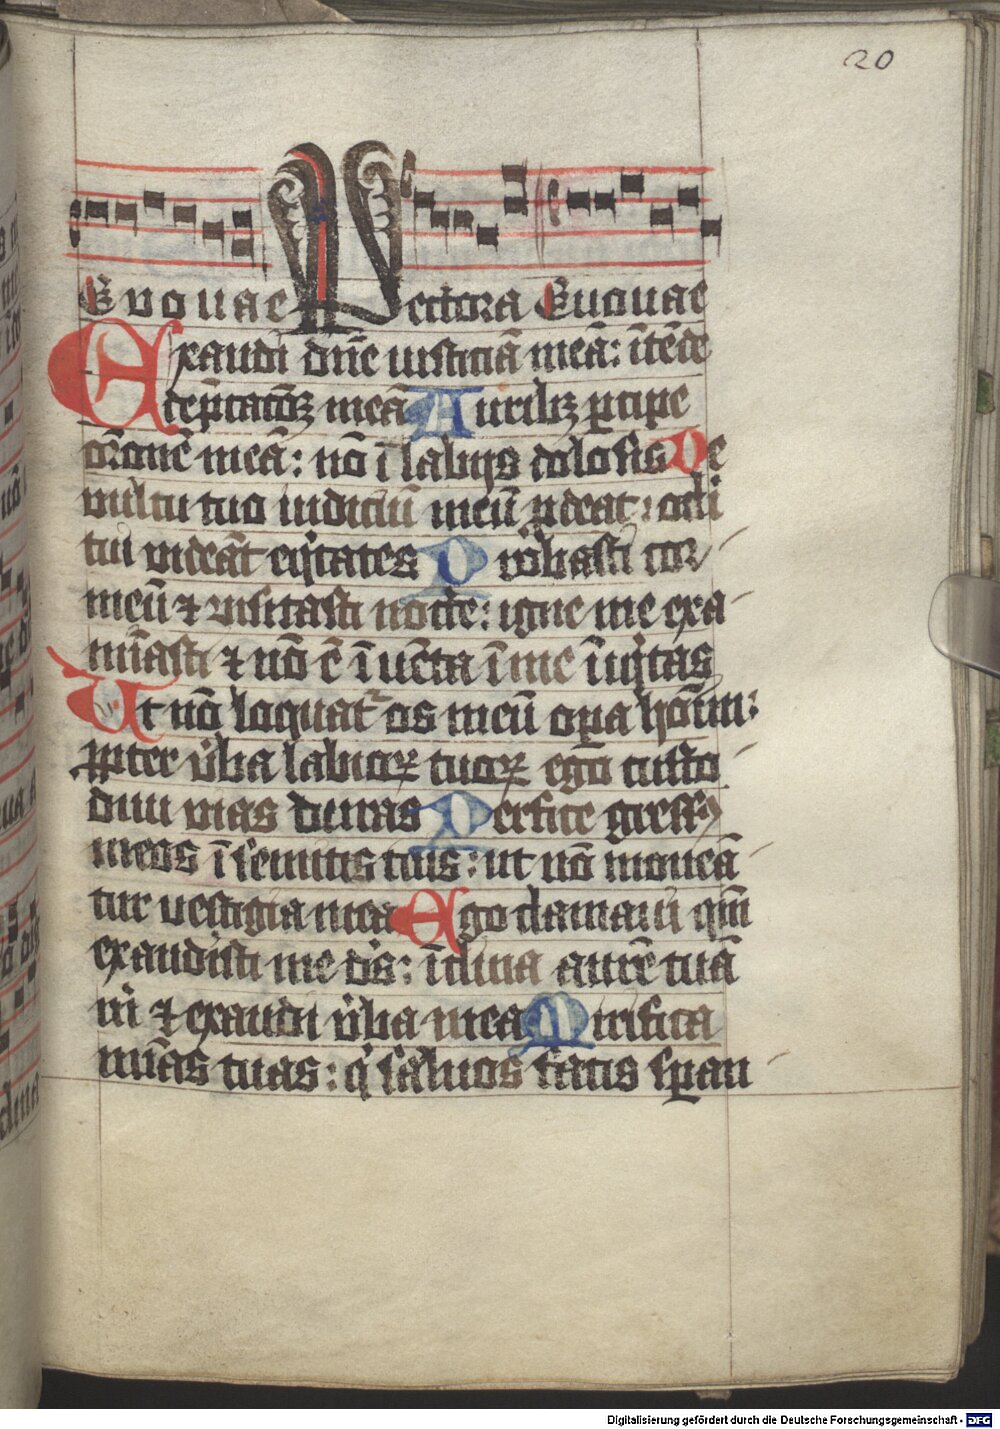 20
Euouae Pectora Euouae
Exaudi dn̄e iusticiā meā: ītēde
dep̄cacōꝫ meā Auribꝫ ꝑcipe
orōnē meā: nō ī labijs dolosis De
vultu tuo iudiciū meū ꝓdeat: ocl̓i
tui videāt eq̓tates Pro̓basti cor
meū ⁊ visitasti nocte: igne me exa
mīasti ⁊ nō ē īuēta ī me īiq̓tas
Ut nō loquat᷑ os meū oꝑa hoīm:
ꝓpter v̓ba labioꝝ tuoꝝ ego custo
diui vias duras Perfice gress9
meos ī semitis tuis: ut nō moueā
tur vestigia mea Ego clamaui qm̄
exaudisti me ds̄: īclina aurē tuā
m̓ ⁊ exaudi v̓ba mea Mirifica
mīas tuas: q̓ saluos facis sꝑan
Digitalisierung gefördert durch die Deutsche Forschungsgemeinschaft - DFG